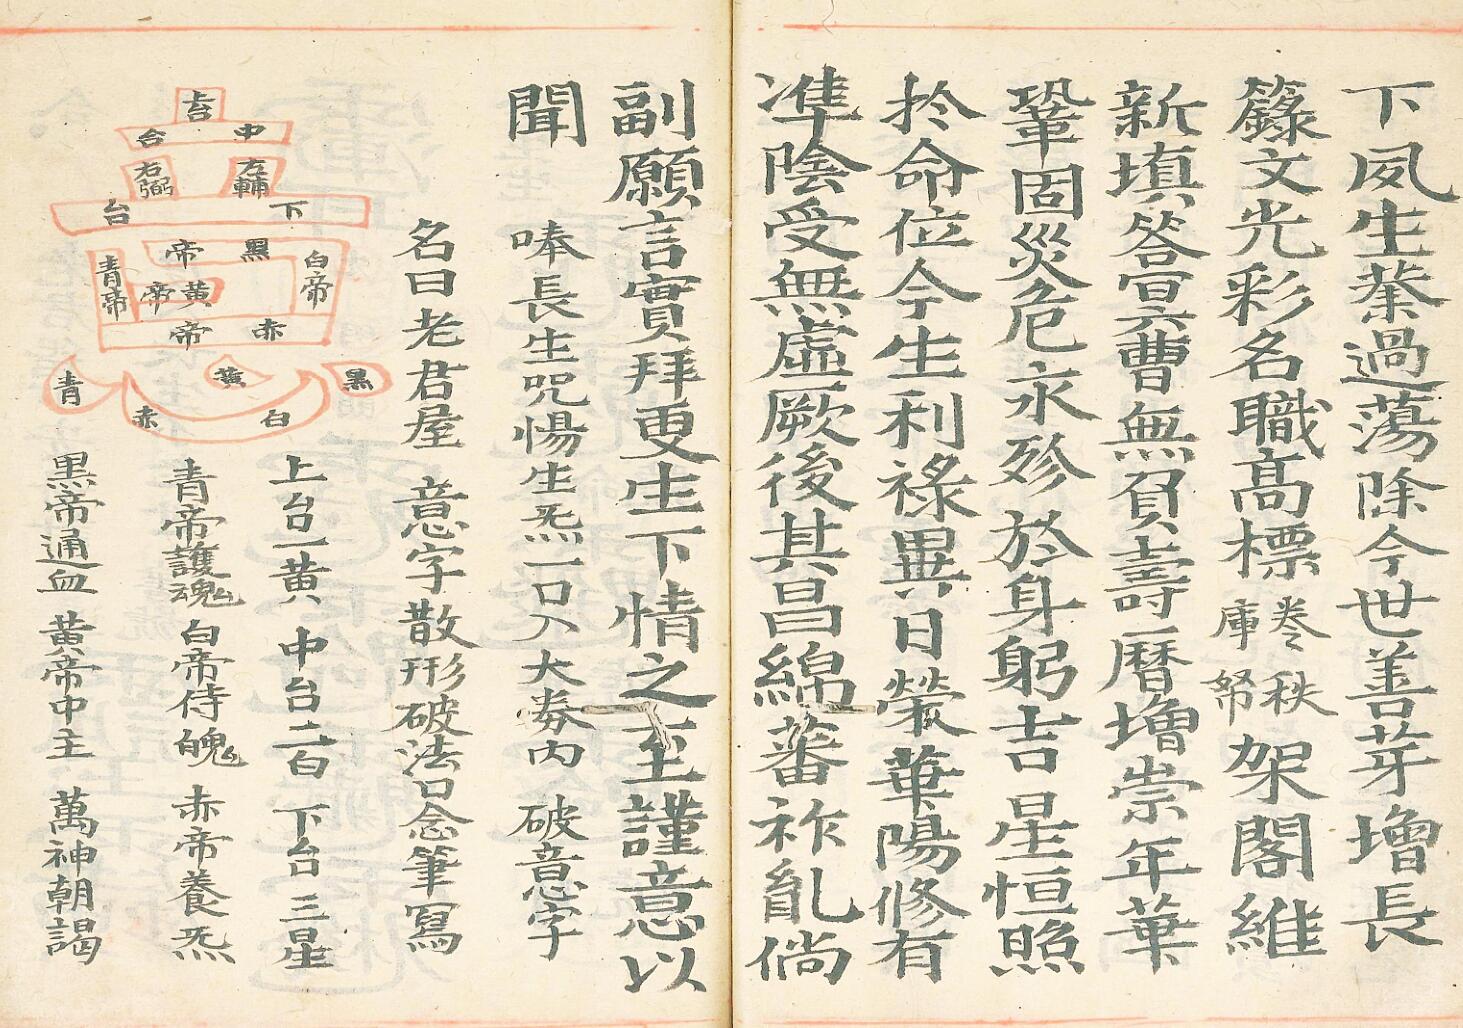 下夙生䇲過蕩除今世善芽增長
籙文光彩名職高標
卷秩
庫帑
架閣維
新填答㝉曹無負壽曆增崇年華
鞏固災危永殄於身躬吉星恒照
扵命位今生利祿異日榮華陽修有
凖陰受無虛厥後其昌綿蕃祚亂倘
副願言實拜更生下情之至謹意以
聞
唪長生咒惕生炁一口入大劵內 破意字
名曰老君屋 意字散形破法口念筆寫
上台一黃 中台二白 下台三星
青帝護魂 白帝侍魄 赤帝養炁
黑帝通血 黃帝中主 萬神朝謁
上台
中台
左輔
右弼
下台
黑帝
白帝
青帝
黃帝
赤帝
青
黃
黑
赤
白